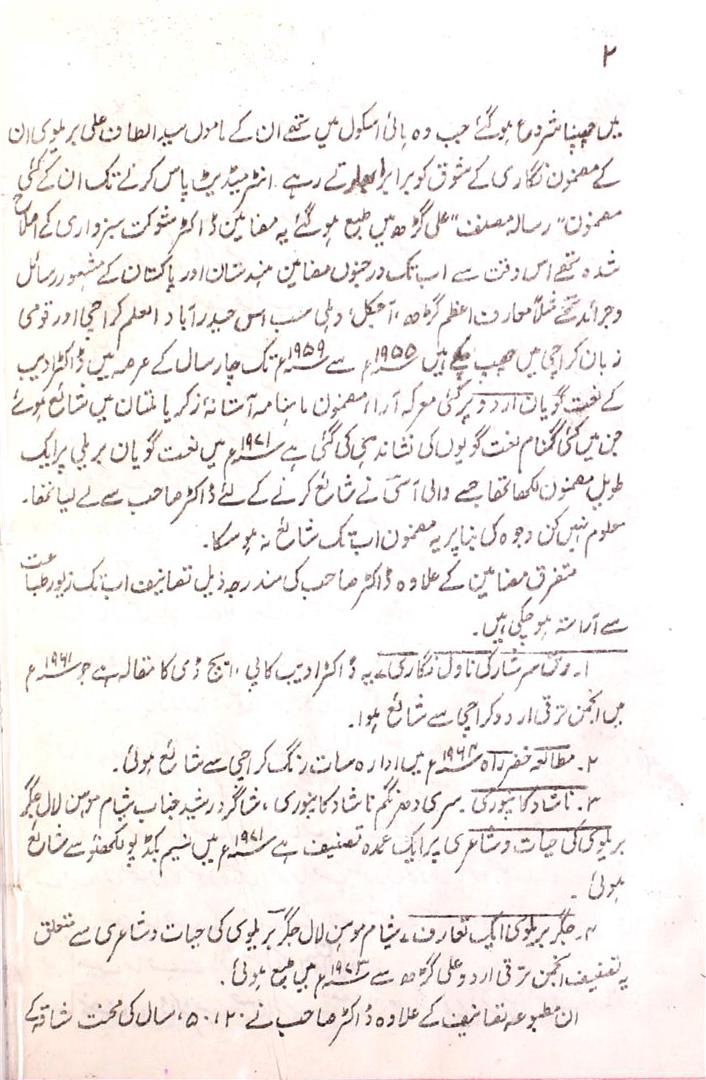 ۲
میں چھپنا شروع ہو گئے جب وہ ہائی اسکول میں تھے ان کے ماموں سید الطاف علی بریلوی ان
کے مضمون نگاری کے شوق کو برابر ابھارتے رہے۔ انٹرمیڈیٹ پاس کرنے تک ان کے کئی
مضمون "رسالہ مصنف" علی گڑھ میں طبع ہو گئے یہ مضامین ڈاکٹر شوکت سبزواری کے اصلاح
شدہ تھے اس وقت سے اب تک درجنوں مضامین ہندستان اور پاکستان کے مشہور رسائل
و جرائد مثلاً معارف اعظم گڑھ، آجکل دہلی سب رس حیدرآباد العلم کراچی اور قومی
زبان کراچی میں چھپ چکے ہیں ۱۹۵۵ء سے ۱۹۵۹ء تک چار سال کے عرصہ میں ڈاکٹر ادیب
کے نعت گویان اردو پر کئی معرکہ آرا مضمون ماہنامہ آستانہ زکریا ملتان میں شائع ہوئے
جن میں کئی گمنام نعت گویوں کی نشاندہی کی گئی ہے ۱۹۷۱ء میں نعت گویان بریلی پر ایک
طویل مضمون لکھا تھا جسے والی آسی نے شائع کرنے کے لئے ڈاکٹر صاحب سے لے لیا تھا۔
معلوم نہیں کن وجوہ کی بنا پر یہ مضمون اب تک شائع نہ ہو سکا۔
متفرق مضامین کے علاوہ ڈاکٹر صاحب کی مندرجہ ذیل تصانیف اب تک زیور طباعت
سے آراستہ ہو چکی ہیں۔
۱۔ رتن سرشار کی ناول نگاری۔ یہ ڈاکٹر ادیب کا پی، ایچ ڈی کا مقالہ ہے جو ۱۹۶۱ء
میں انجمن ترقی اردو کراچی سے شائع ہوا۔
۲۔ مطالعہ خضر راہ ۱۹۶۴ء میں ادارہ سات رنگ کراچی سے شائع ہوئی۔
۳۔ ناشاد کانپوری۔ سری دھر نگم ناشاد کانپوری، شاگرد رشید جناب شیام موہن لال جگر
بریلوی کی حیات و شاعری پر ایک عمدہ تصنیف ہے ۱۹۷۱ء میں نسیم بکڈپو لکھنؤ سے شائع
ہوئی۔
۴۔ جگر بریلوی ایک تعارف۔ شیام موہن لال جگر بریلوی کی حیات و شاعری سے متعلق
یہ تصنیف انجمن ترقی اردو علی گڑھ سے ۱۹۷۳ء میں طبع ہوئی۔
ان مطبوعہ تصانیف کے علاوہ ڈاکٹر صاحب نے سال کی محنت شاقہ کے